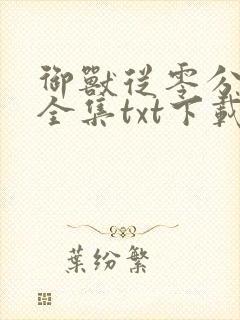 御獸從零分
全集txt下載
葉紛繁